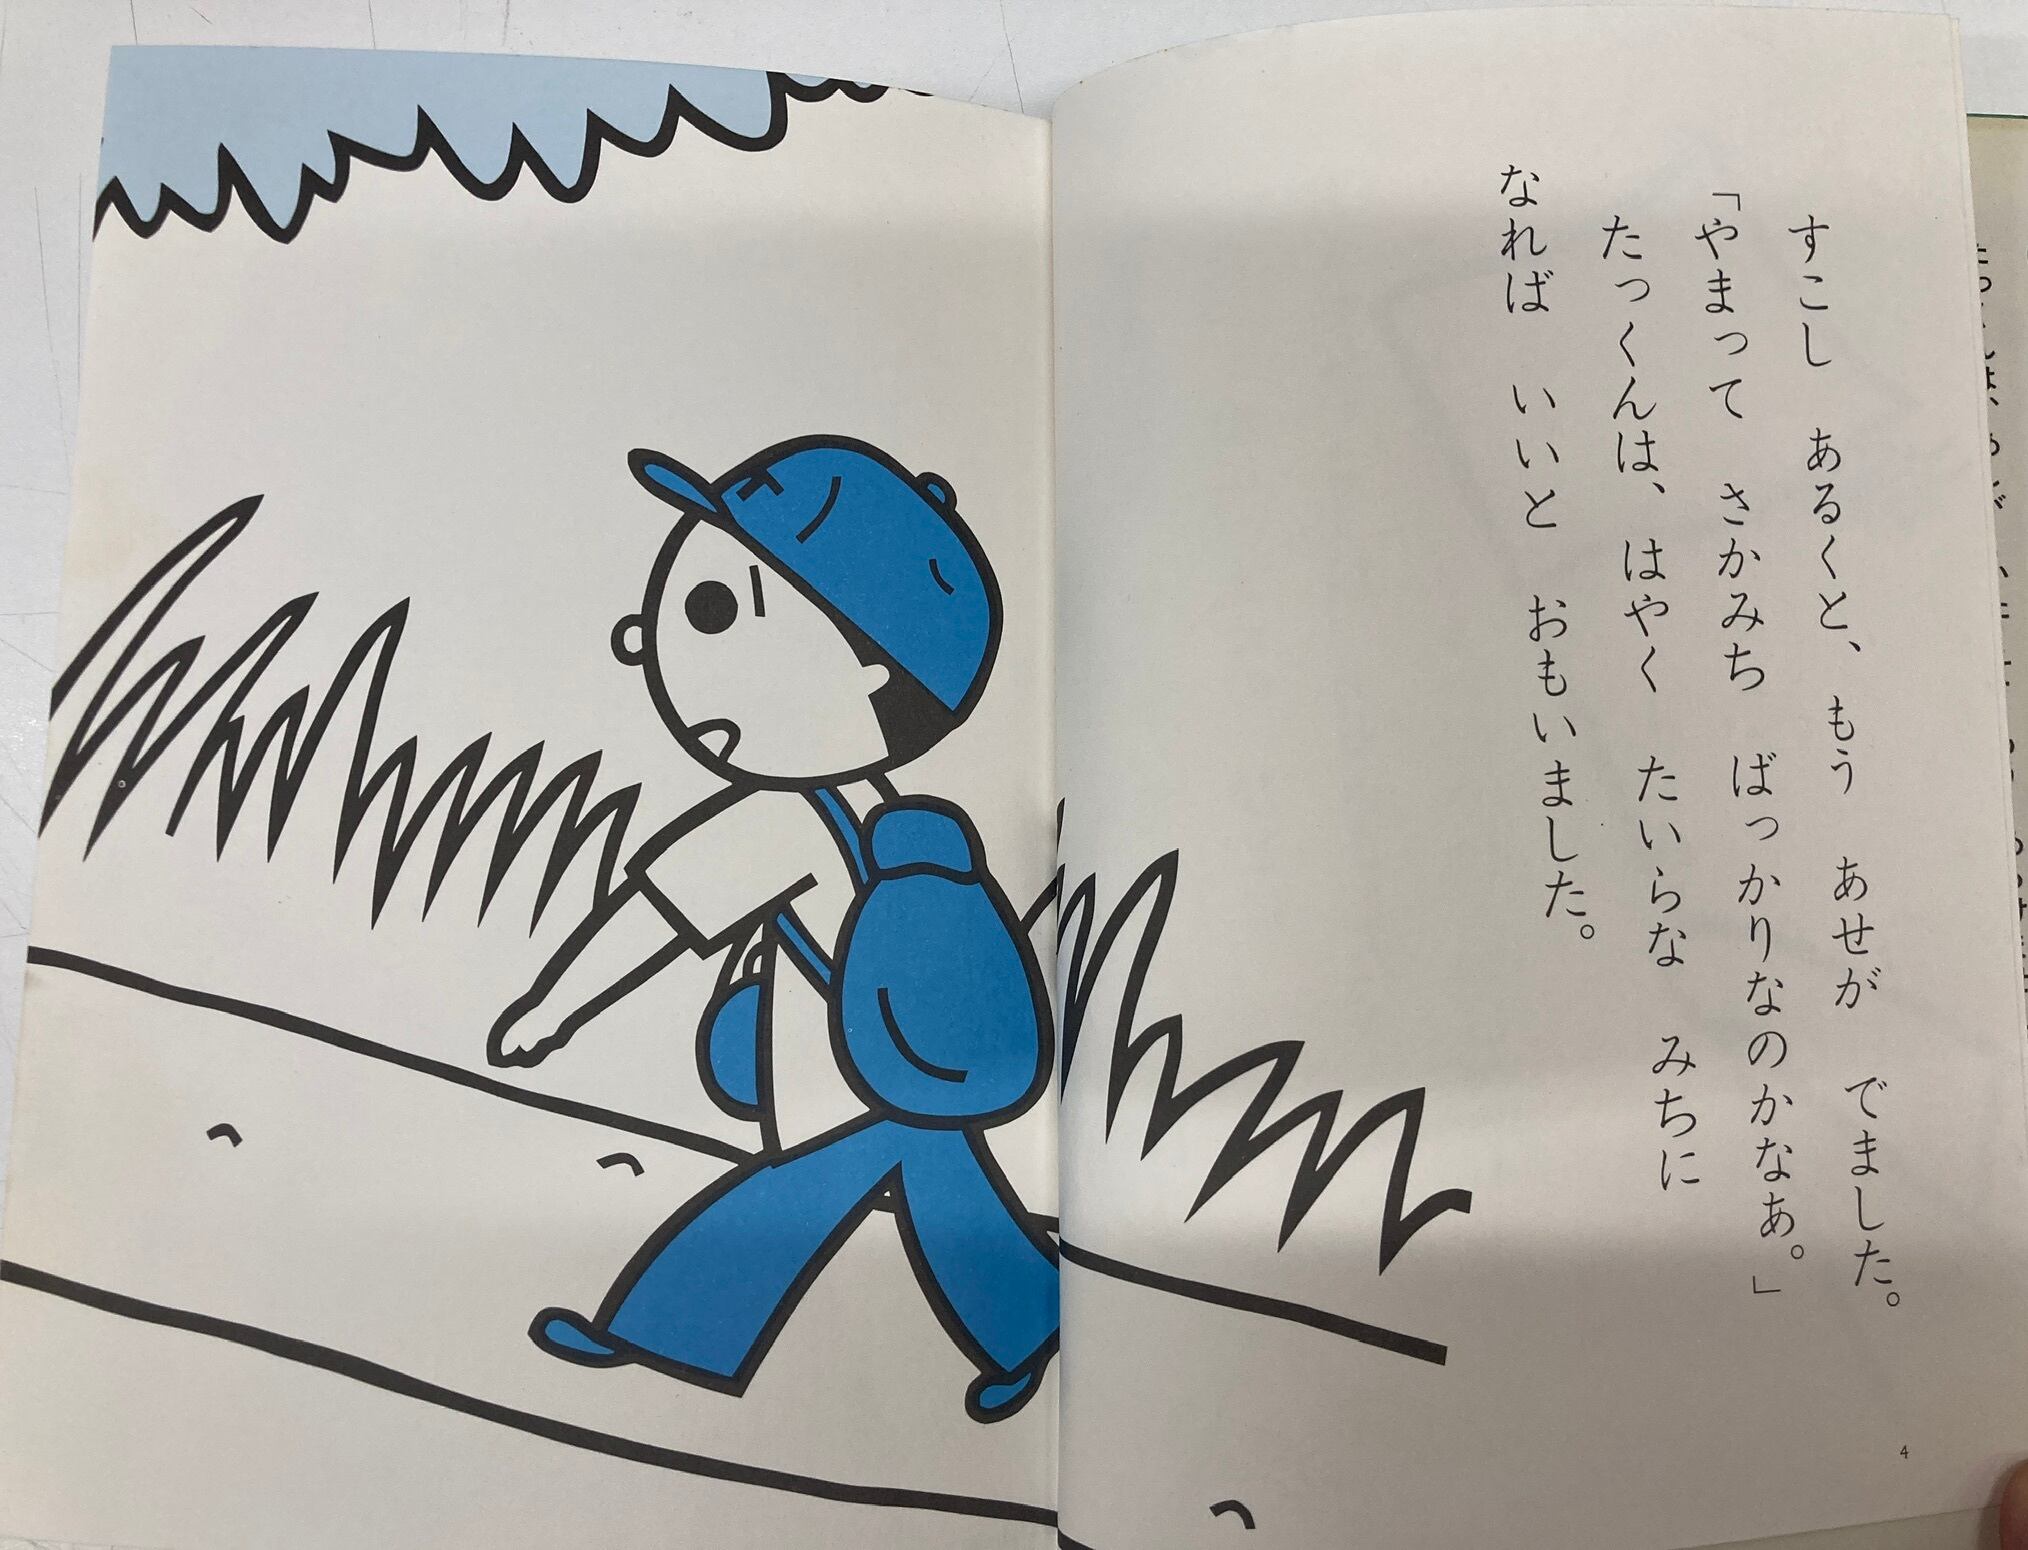 すこし　あるくと、もう　あせが　でました。
「やまって　さかみち　ばっかりなのかなあ。」
たっくんは、はやく　たいらな　みちに
なれば　いいと　おもいました。
4